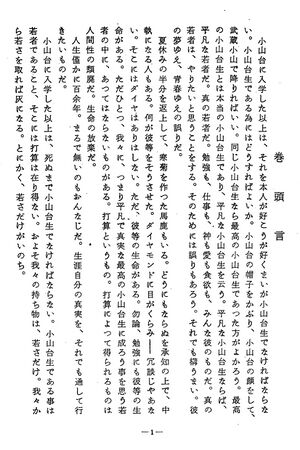 巻頭言
小山台に入学した以上は、それを本人が好こうが好くまいが小山台生でなければならな
い。小山台生である為にはどうすればよいか。小山台の帽子をかぶり、小山台の顔をして、
武蔵小山で降りればいい。同じ小山台生なら最高の小山台生であった方がよかろう。最高
の小山台生とは本当の小山台生であり、平凡な小山台生を云う。平凡な小山台生ならば、
平凡な若者だ。真の若者だ。勉強も、仕事も、神も愛も食慾も、みんな彼のものだ。真の
若者は、やりたいと思うことをする。そのためには誤りもあろう。それでも構うまい。彼
の夢ゆえ、青春ゆえの誤りだ。
夏休みの半分を返上して、寒菊を作った馬鹿もいる。どうにもならぬを承知の上で、中
執になる人もある。何が彼等をそうさせた。ダイヤモンドに目がくらみ――冗談じゃあな
い。そこにはダイヤはありはしない。ただ、彼等の生命がある。勿論、勉強にも彼等の生
命がある。ただひとつ、我々に、つまり平凡で真実な最高の小山台生に成ろう事を思う若
者の中に、あつてはならないものがある。打算というもの。打算によって得られるものは
人間性の頽廃だ。生命の放棄だ。
人生僅かに百余年。まるで無いのもおんなじだ。生涯自分の真実を、それでも通して行
きたいものだ。
小山台に入学した以上は、死ぬまで小山台生でなければならない。小山台生である事は
若者であること、そこには打算は在り得ない。およそ我々の持ち物は、若さだけ。我々か
ら若さを取れば灰になる。とにかく、若さだけがいのち。
―1―